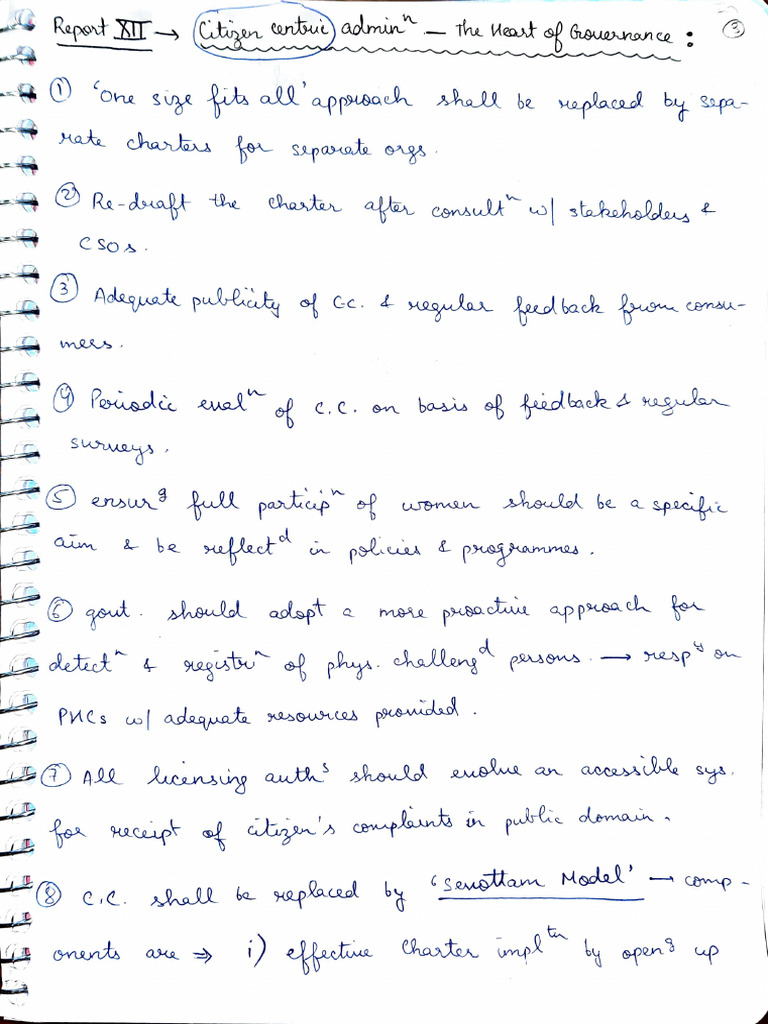 Report XII → Citizen centric adminⁿ — The Heart of Governance : ③
① 'One size fits all' approach shall be replaced by sepa-
rate charters for separate orgs.
② Re-draft the charter after consultⁿ w/ stakeholders &
CSOs.
③ Adequate publicity of C.C. & regular feedback from consu-
mers.
④ Periodic evalⁿ of C.C. on basis of feedback & regular
surveys.
⑤ ensurᵍ full participⁿ of women should be a specific
aim & be reflectᵈ in policies & programmes.
⑥ govt. should adopt a more proactive approach for
detectⁿ & registrⁿ of phys. challengᵈ persons. → respʸ on
PHCs w/ adequate resources provided.
⑦ All licensing authˢ should evolve an accessible sys.
for receipt of citizen's complaints in public domain.
⑧ C.C. shall be replaced by 'Sevottam Model' → comp-
onents are ⇒ i) effective Charter implᵗⁿ by openᵍ up